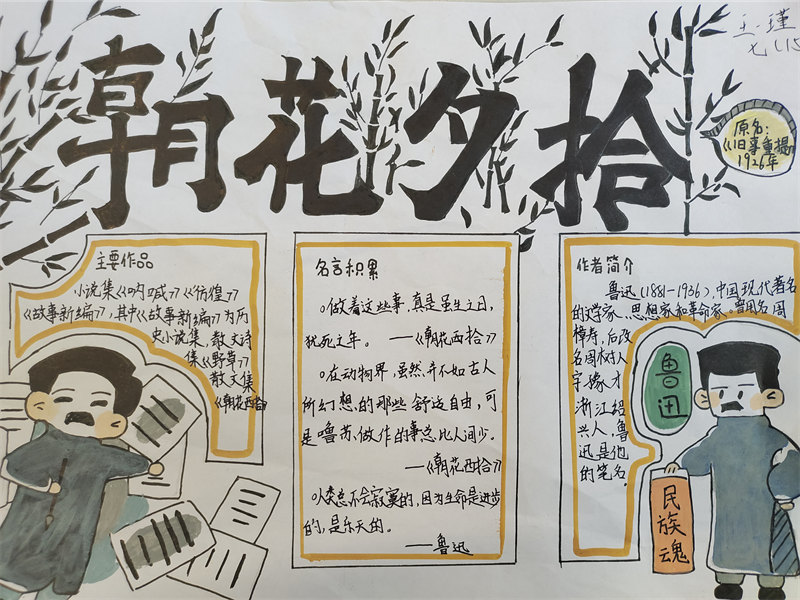 朝花夕拾
王瑾
七(15
原名:
《旧事重提》
1926年
主要作品
小说集《呐喊》《彷徨》
《故事新编》,其中《故事新编》为历
史小说集,散文诗
集《野草》
散文集
《朝花西拾》
名言积累
○做着这些事,真是虽生之日,
犹死之年。——《朝花西拾》
○在动物界,虽然并不如古人
所幻想的那些舒适自由,可
是噜苏做作的事总比人间少。
——《朝花西拾》
○人类总不会寂寞的,因为生命是进步
的,是乐天的。
——鲁迅
作者简介
鲁迅(1881-1936),中国现代著名
的文学家、思想家和革命家。曾用名周
樟寿,后改
名周树人,
字豫才
浙江绍
兴人,鲁
迅是他
的笔名。
鲁迅
民族魂